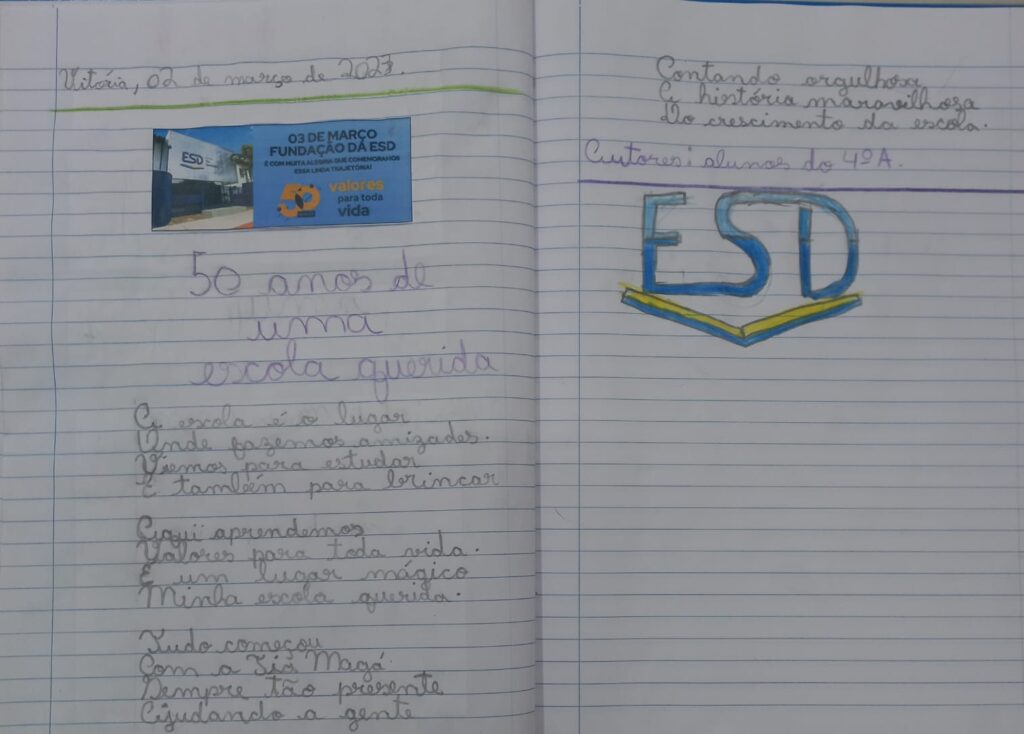 Vitória, 02 de março de 2023.
ESD
03 DE MARÇO
FUNDAÇÃO DA ESD
É COM MUITA ALEGRIA QUE COMEMORAMOS
ESSA LINDA TRAJETÓRIA!
50
valores
para toda
vida
50 anos de
uma
escola querida
A escola é o lugar
Onde fazemos amizades.
Viemos para estudar
E também para brincar
Aqui aprendemos
Valores para toda vida.
É um lugar mágico
Minha escola querida.
Tudo começou
Com a Tia Magá
Sempre tão presente
Ajudando a gente
Contando orgulhosa
A história maravilhosa
Do crescimento da escola.
Autores: alunos do 4º A.
ESD